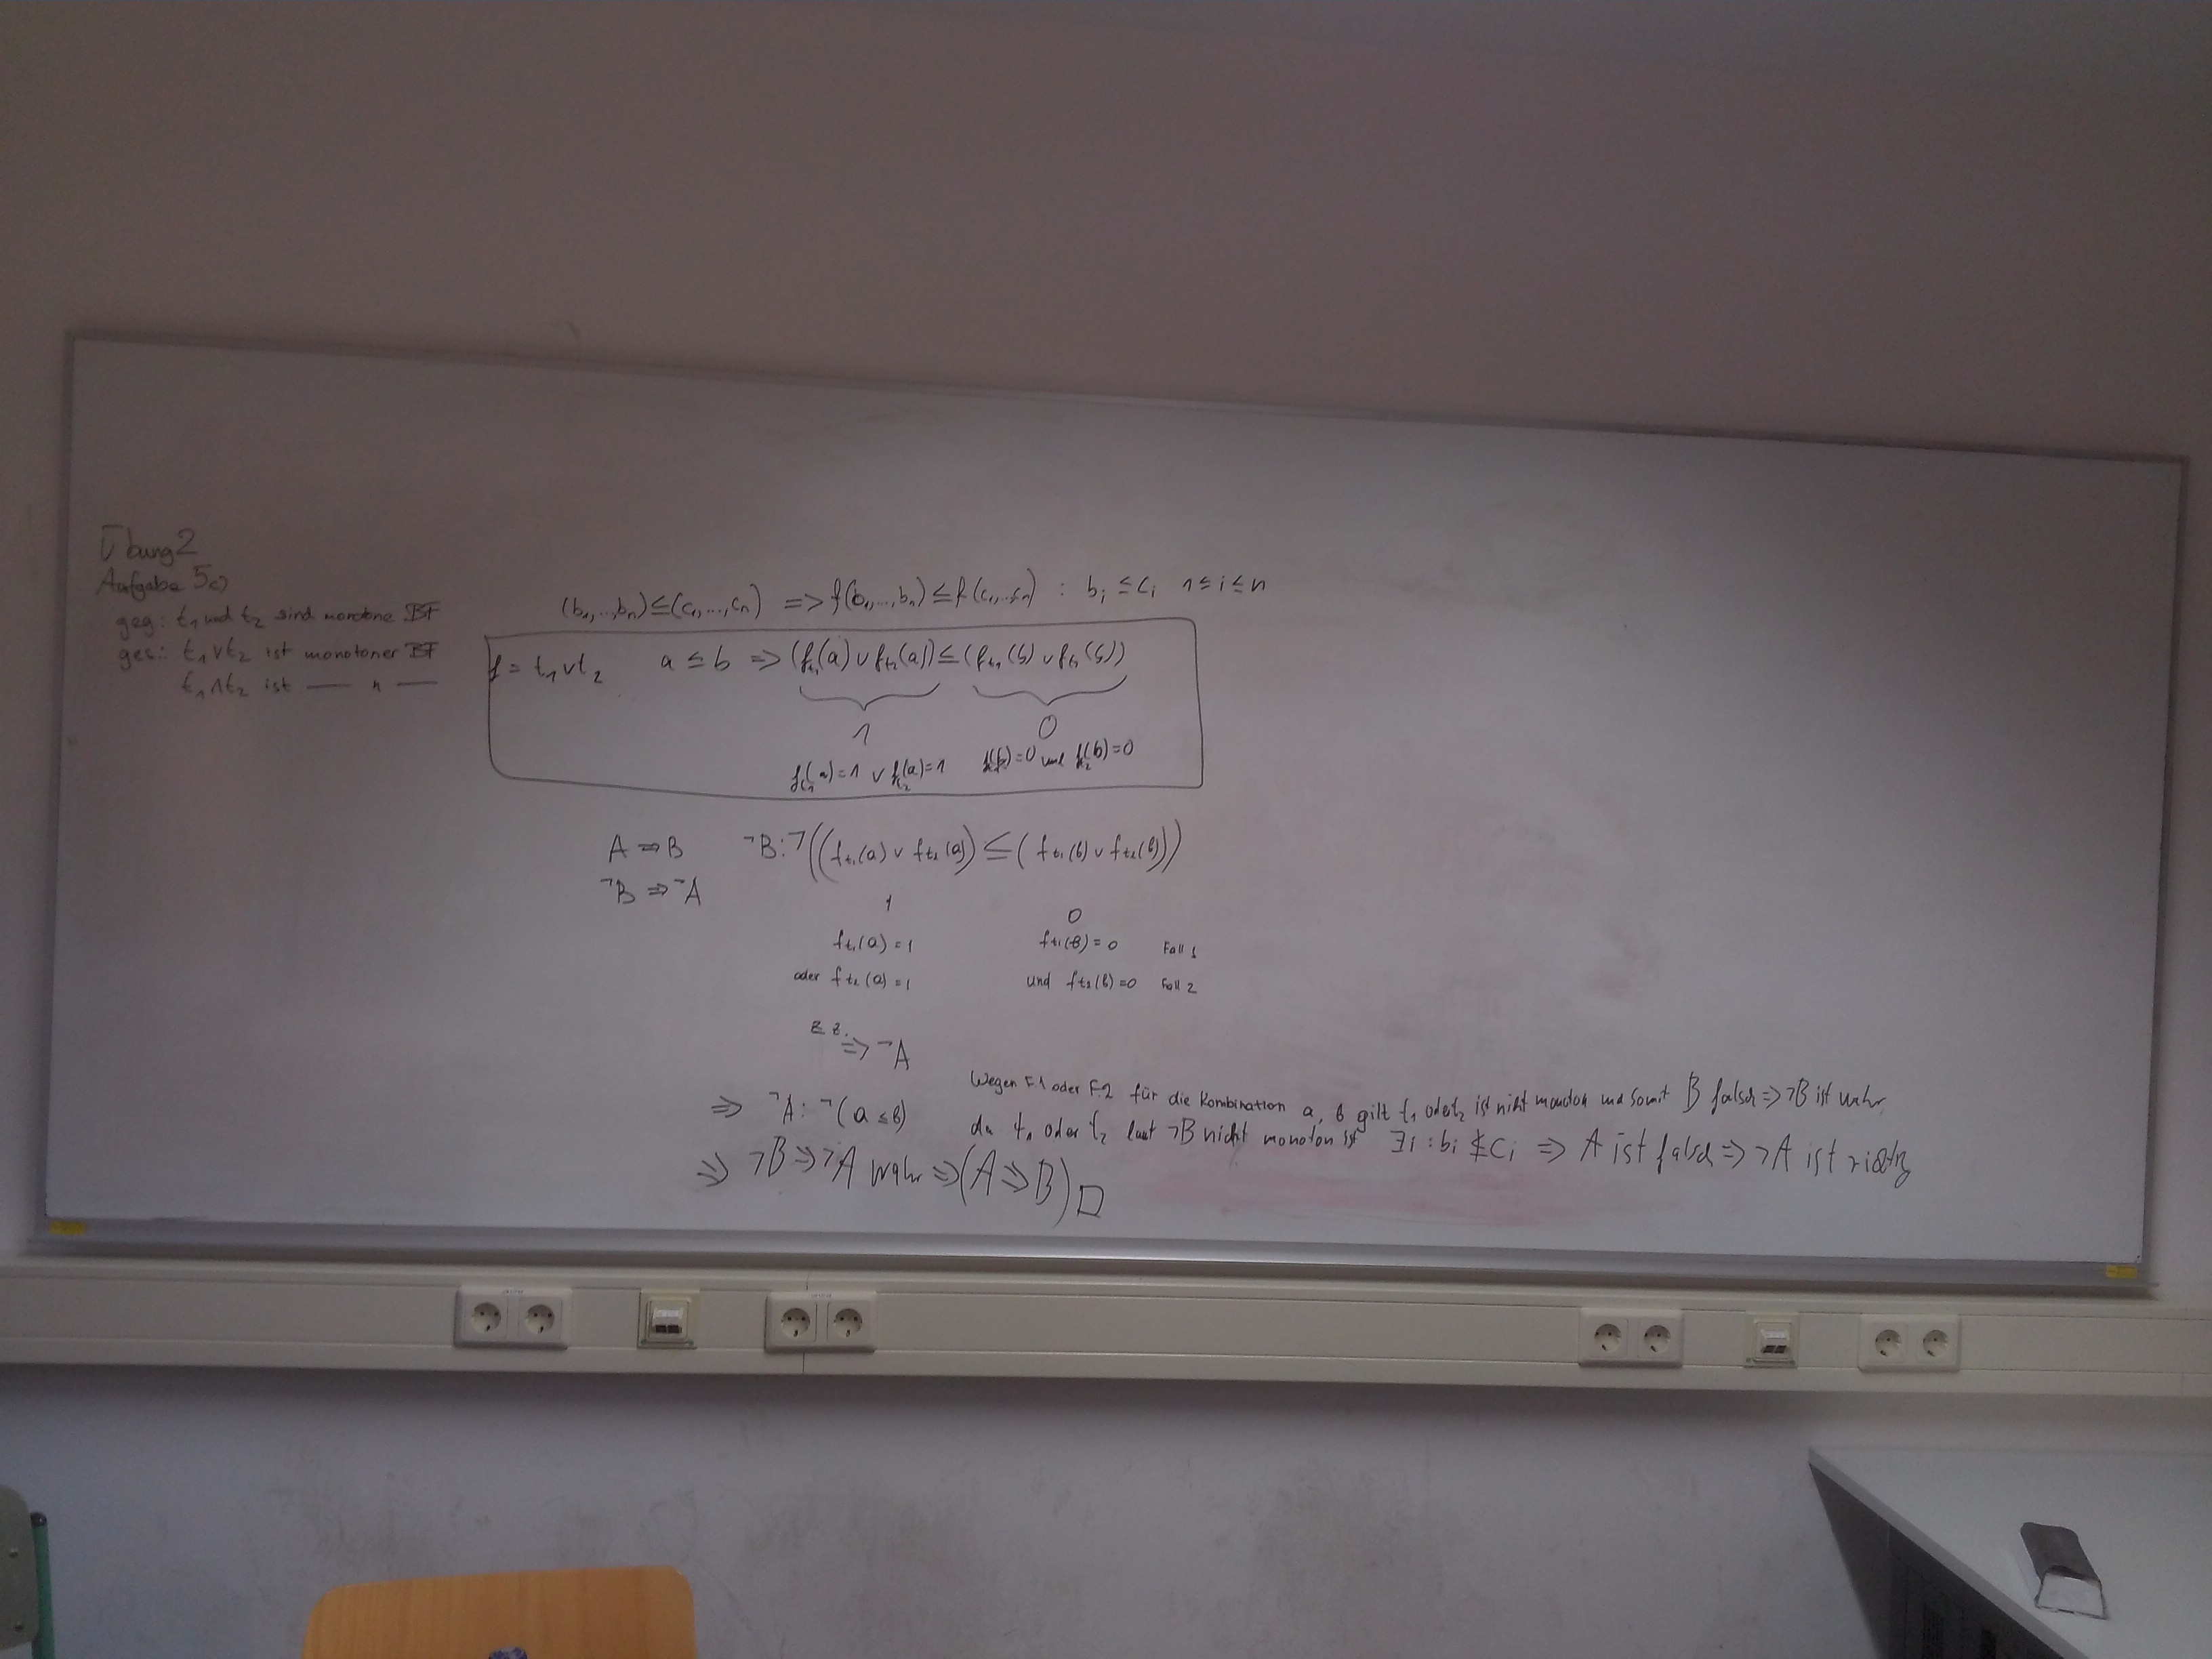 Übung 2
Aufgabe 5c)
geg: t₁ und t₂ sind monotone BF
ges: t₁∨t₂ ist monotoner BF
t₁∧t₂ ist — " —
(b₁,...,bₙ)≤(c₁,...,cₙ) => f(b₁,...,bₙ)≤f(c₁,...,cₙ) : bᵢ ≤ cᵢ 1≤i≤n
f = t₁∨t₂ a ≤ b => (fₜ₁(a)∨fₜ₂(a))≤(fₜ₁(b)∨fₜ₂(b))
1 0
fₜ₁(a)=1 ∨ fₜ₂(a)=1 fₜ₁(b)=0 und fₜ₂(b)=0
A ⇒ B ¬B: ¬((fₜ₁(a) ∨ fₜ₂(a)) ≤ (fₜ₁(b) ∨ fₜ₂(b)))
¬B ⇒ ¬A
1 0
fₜ₁(a) = 1 fₜ₁(b) = 0 Fall 1
oder fₜ₂(a) = 1 und fₜ₂(b) = 0 Fall 2
z.z.
⇒ ¬A
Wegen F.1 oder F.2 für die Kombination a, b gilt t₁ oder t₂ ist nicht monoton und somit B falsch ⇒ ¬B ist wahr
⇒ ¬A: ¬(a ≤ b)
da t₁ oder t₂ laut ¬B nicht monoton ist ∃i : bᵢ ≰ cᵢ ⇒ A ist falsch ⇒ ¬A ist richtig
⇒ ¬B ⇒ ¬A wahr ⇒ (A ⇒ B) □